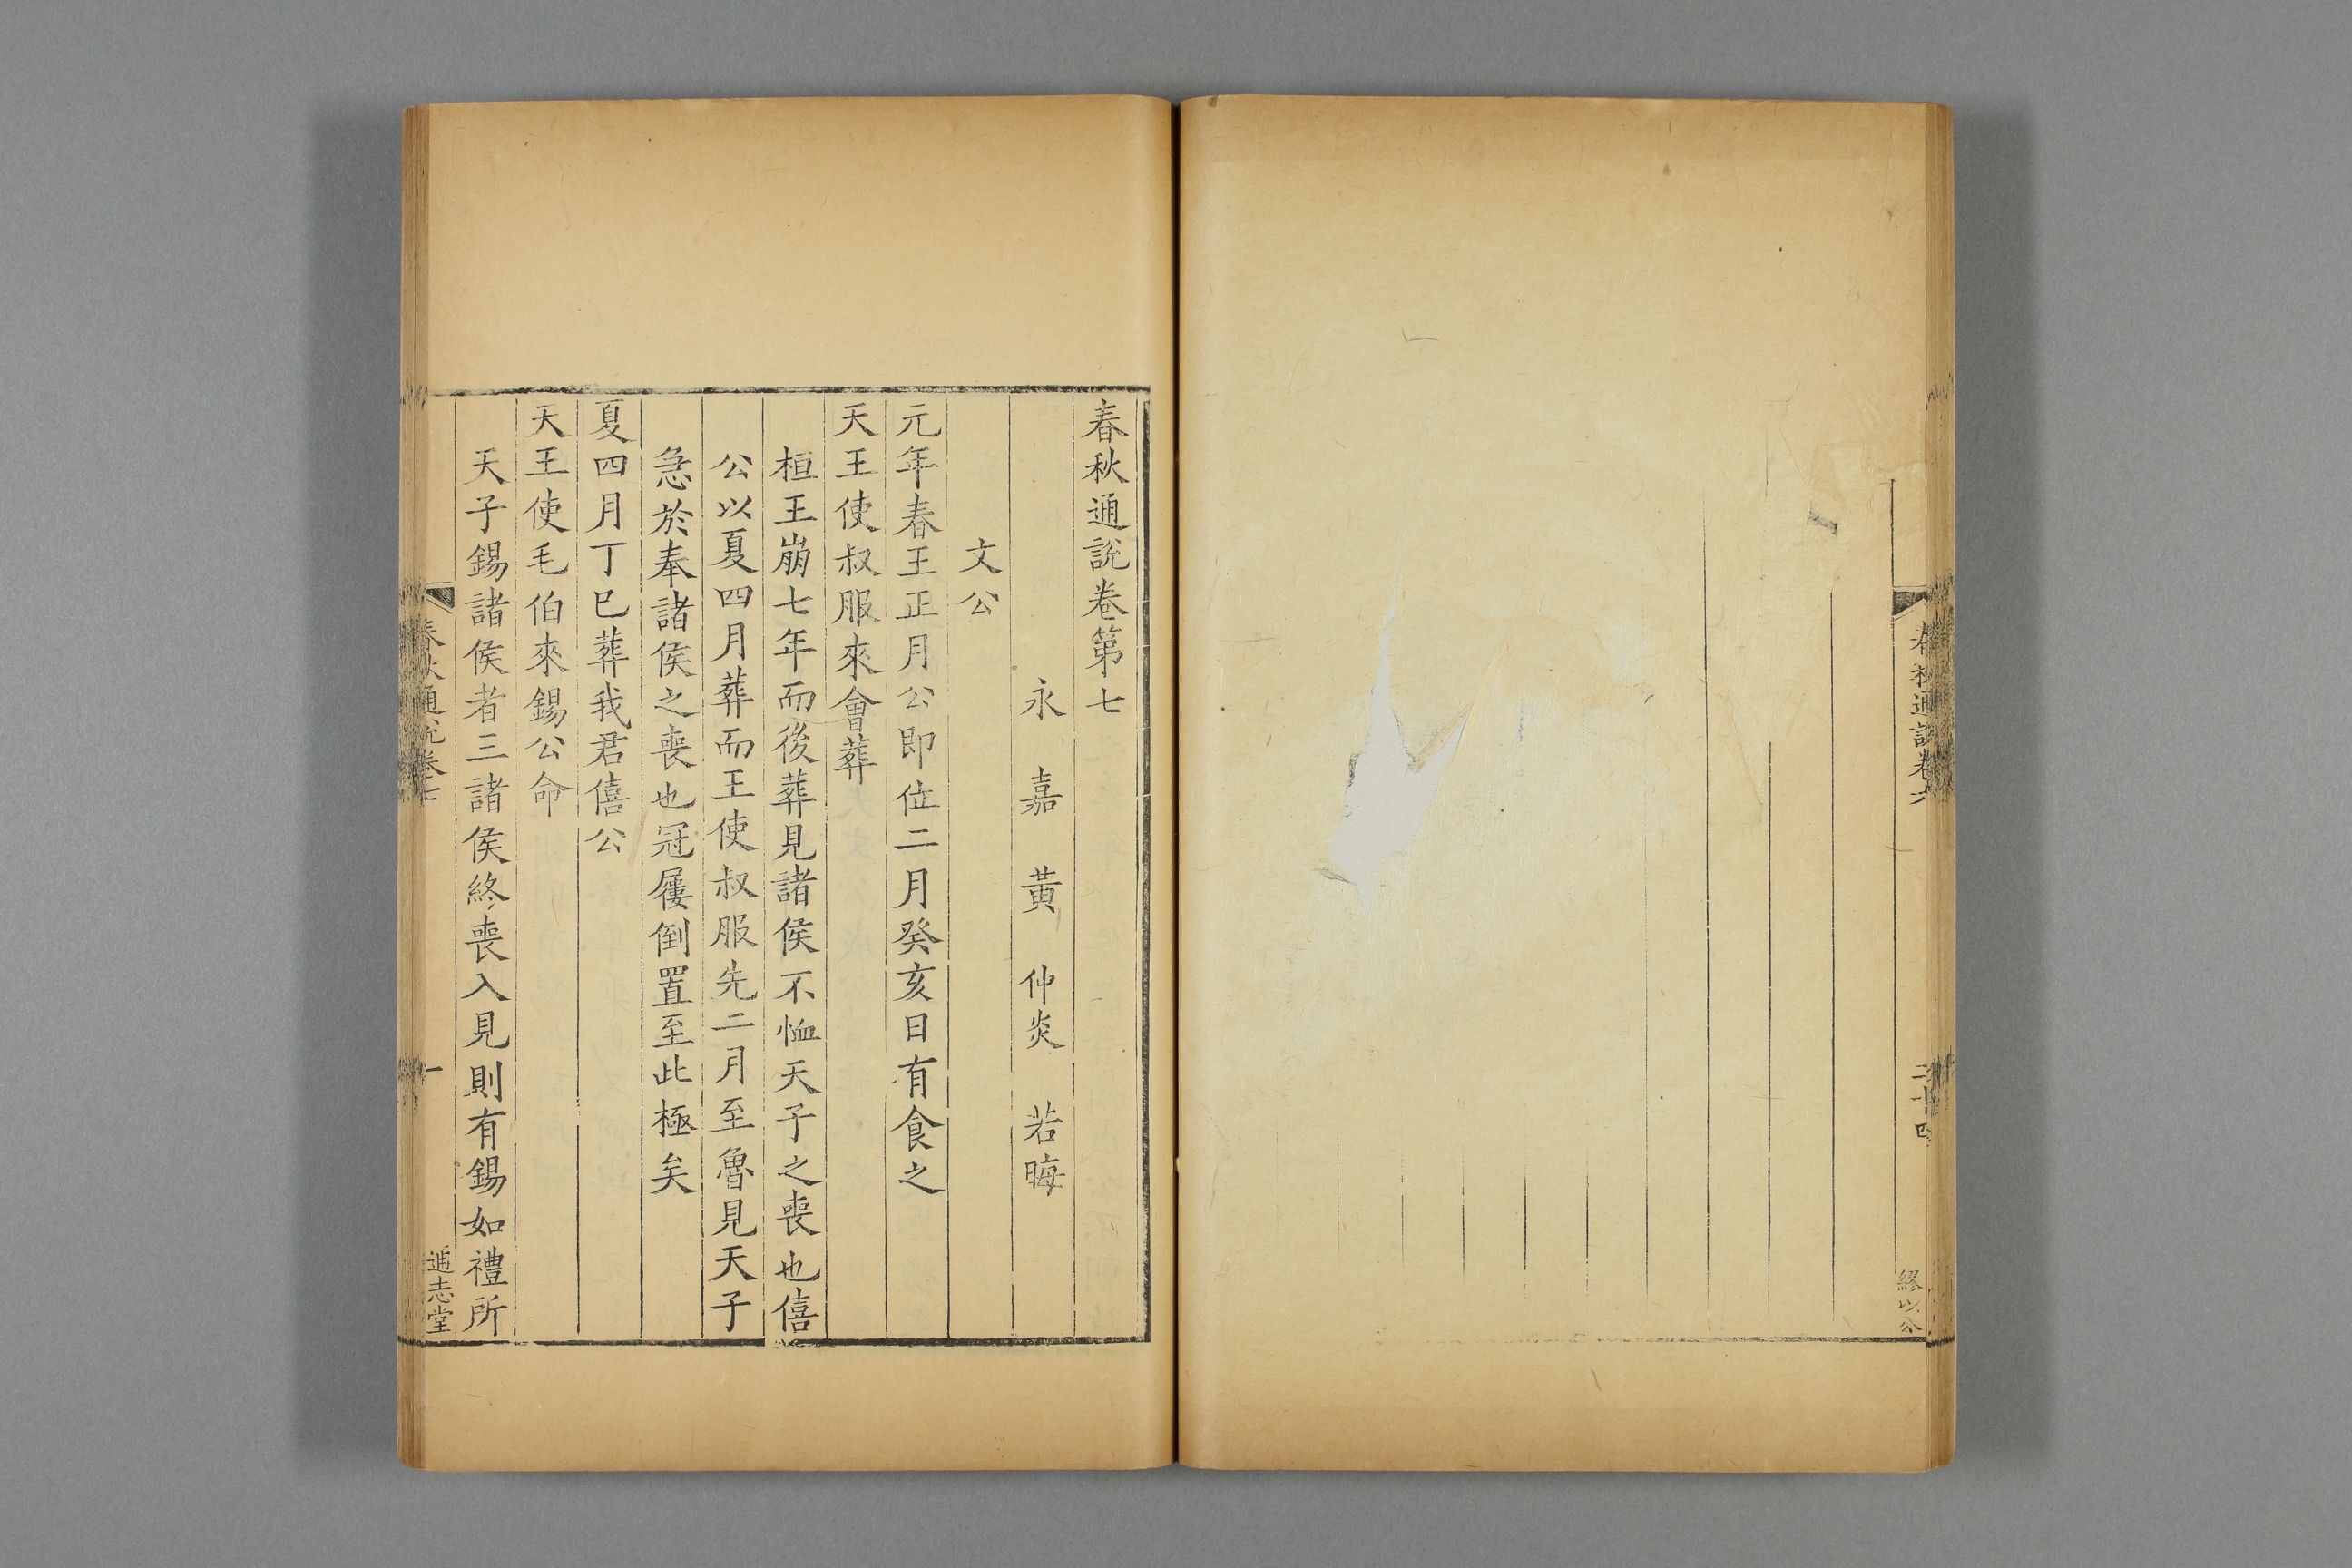 春秋通說卷六
二十四
繆以公
春秋通說卷第七
永嘉黃仲炎若晦
文公
元年春王正月公即位二月癸亥日有食之
天王使叔服來會葬
桓王崩七年而後葬見諸侯不恤天子之喪也僖
公以夏四月葬而王使叔服先二月至魯見天子
急於奉諸侯之喪也冠屨倒置至此極矣
夏四月丁巳葬我君僖公
天王使毛伯來錫公命
天子錫諸侯者三諸侯終喪入見則有錫如禮所
春秋通說卷七
一
通志堂